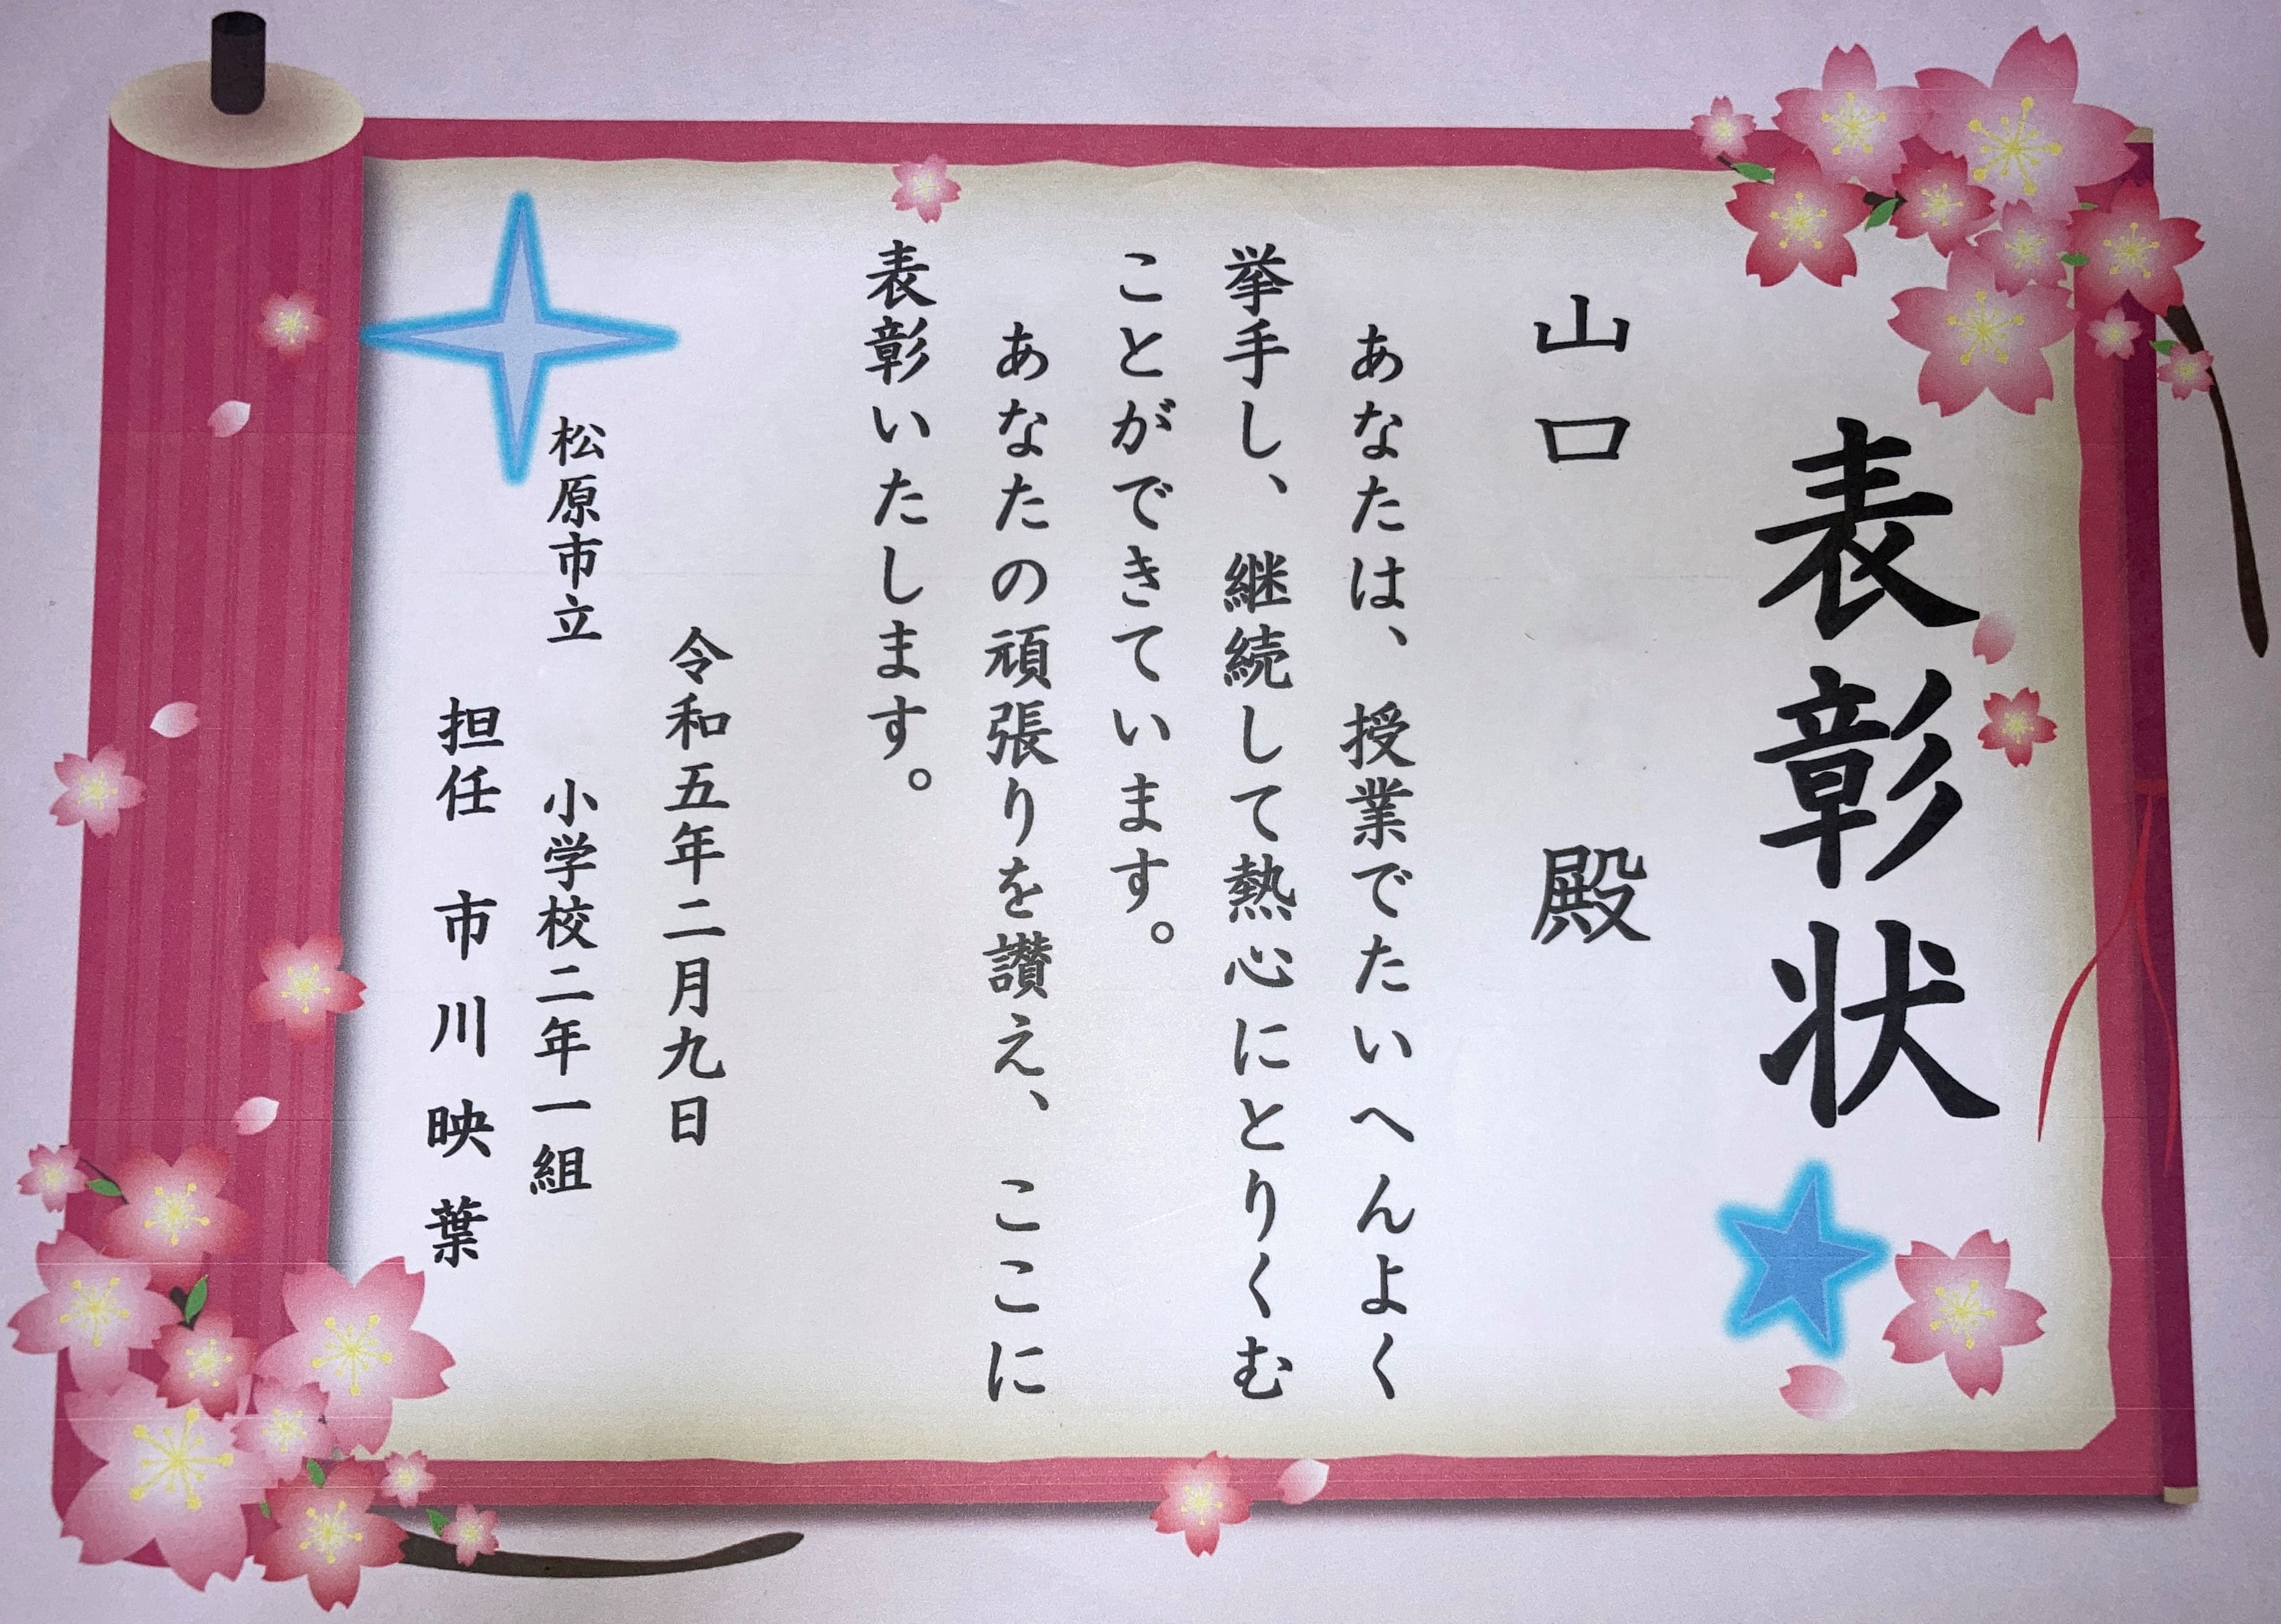 表彰状
山口　殿
あなたは、授業でたいへんよく
挙手し、継続して熱心にとりくむ
ことができています。
あなたの頑張りを讃え、ここに
表彰いたします。
令和五年二月九日
松原市立　小学校二年一組
担任　市川映葉